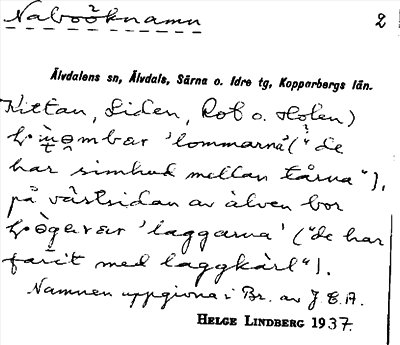 Naboöknamn 2
Älvdalens sn, Älvdals, Särna o. Idre tg, Kopparbergs län.
Kittan, Liden, Rot o. Holen)
'lommarna' ("de
har simhud mellan tårna"),
på västsidan av älven bor
'laggarna' ("de har
farit med laggkärl").
Namnen uppgivna i Br. av J E.A.
HELGE LINDBERG 1937.